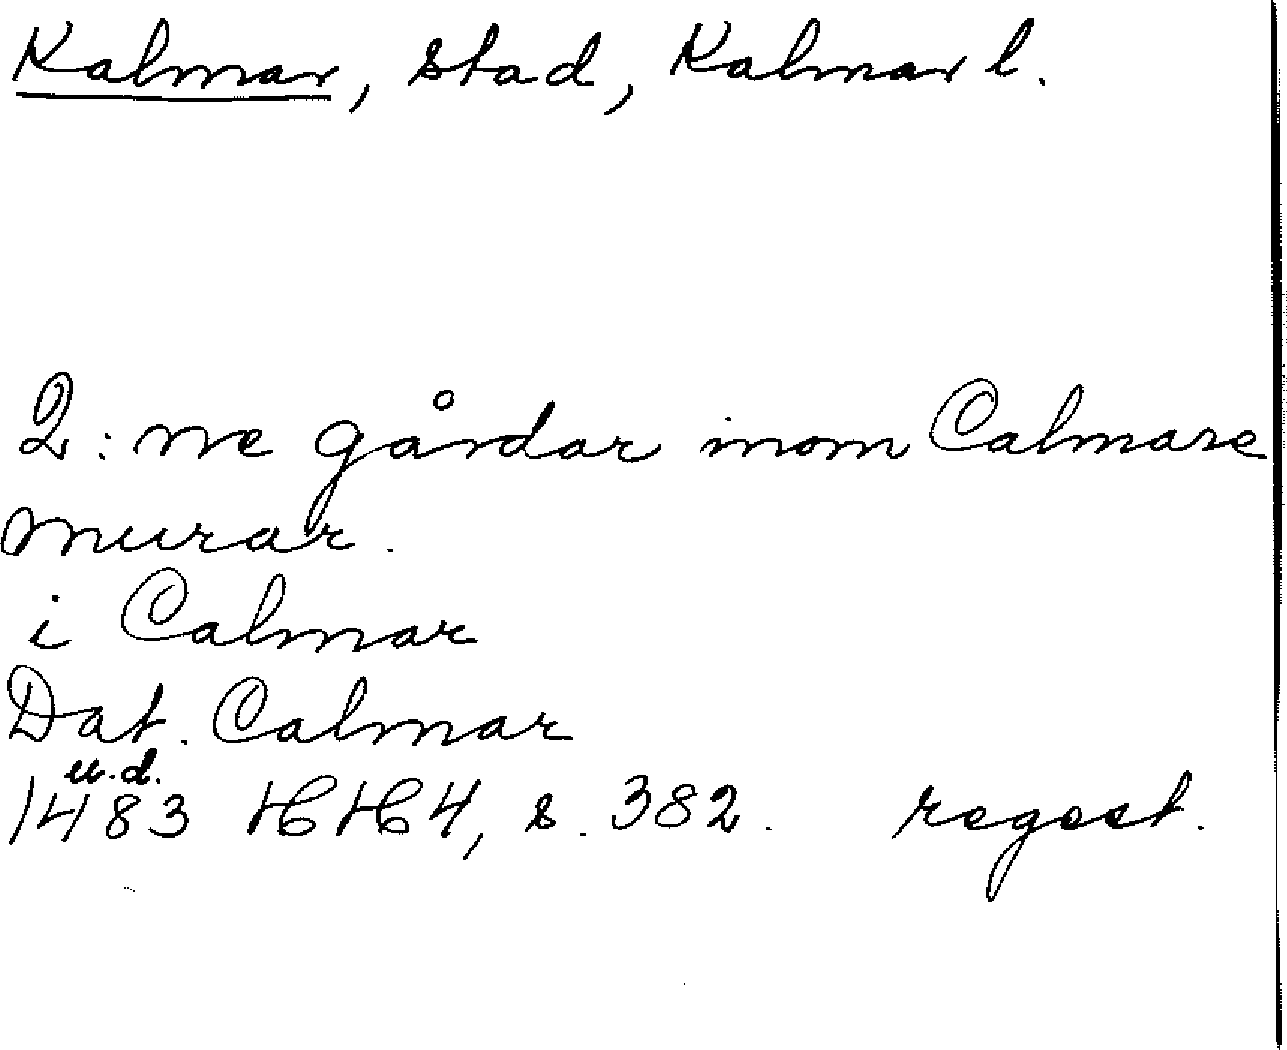 Kalmar, stad, Kalmar l.
2:ne gårdar inom Calmare
murar.
i Calmar
Dat. Calmar
u.d.
1483 HH4, s. 382. regest.